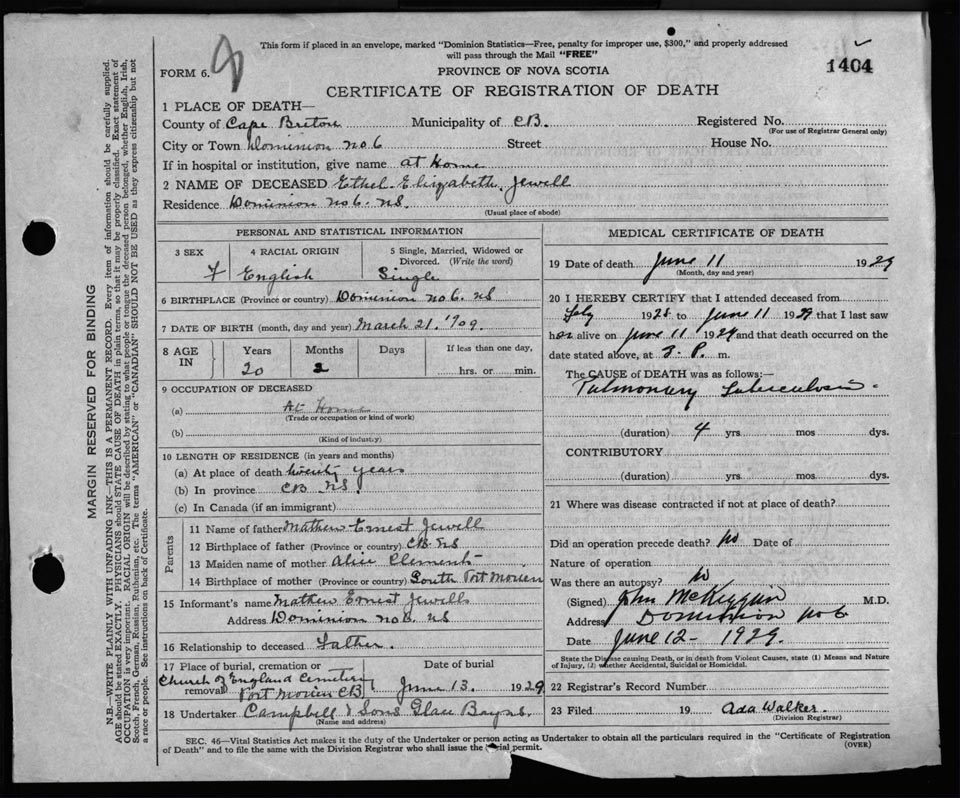 This form if placed in an envelope, marked "Dominion Statistics—Free, penalty for improper use, $300," and properly addressed
will pass through the Mail "FREE"
FORM 6.
PROVINCE OF NOVA SCOTIA
1404
CERTIFICATE OF REGISTRATION OF DEATH
1 PLACE OF DEATH—
County of Cape Breton Municipality of CB. Registered No.
(For use of Registrar General only)
City or Town Dominion no 6 Street House No.
If in hospital or institution, give name at Home
2 NAME OF DECEASED Ethel Elizabeth Jewell
Residence Dominion no 6. NS
(Usual place of abode)
PERSONAL AND STATISTICAL INFORMATION
3 SEX 4 RACIAL ORIGIN 5 Single, Married, Widowed or
Divorced. (Write the word)
F English Single
6 BIRTHPLACE (Province or country) Dominion no 6. NS
7 DATE OF BIRTH (month, day and year) March 21. 1909.
8 AGE IN Years Months Days If less than one day,
20 2 hrs. or min.
9 OCCUPATION OF DECEASED
(a) At Home
(Trade or occupation or kind of work)
(b)
(Kind of industry)
10 LENGTH OF RESIDENCE (in years and months)
(a) At place of death twenty years
(b) In province CB NS.
(c) In Canada (if an immigrant)
Parents
11 Name of father Mathew Ernest Jewell
12 Birthplace of father (Province or country) CB. NS
13 Maiden name of mother Alice Clements
14 Birthplace of mother (Province or country) South Port Morien
15 Informant's name Mathew Ernest Jewell
Address Dominion no 6. NS
16 Relationship to deceased Father.
17 Place of burial, cremation or removal Date of burial
Church of England Cemetery
Port Morien CB June 13. 1929
18 Undertaker Campbell & Sons Glace Bay NS.
(Name and address)
MEDICAL CERTIFICATE OF DEATH
19 Date of death June 11 1929
(Month, day and year)
20 I HEREBY CERTIFY that I attended deceased from
1928 to June 11 1929 that I last saw
her alive on June 11 1929 and that death occurred on
date stated above, at 3. P. m.
The CAUSE of DEATH was as follows:—
Pulmonary Tuberculosis.
(duration) 4 yrs mos dys.
CONTRIBUTORY
(duration) yrs. mos. dys.
21 Where was disease contracted if not at place of death?
Did an operation precede death? No Date of
Nature of operation
Was there an autopsy? No
(Signed) John McKeggan M.D.
Address Dominion No 6
Date June 12 - 1929.
State the Disease causing Death, or in death from Violent Causes, state (1) Means and Nature
of Injury, (2) whether Accidental, Suicidal or Homicidal.
22 Registrar's Record Number
23 Filed 19 Ada Walker.
(Division Registrar)
SEC. 46—Vital Statistics Act makes it the duty of the Undertaker or person acting as Undertaker to obtain all the particulars required in the "Certificate of Registration
of Death" and to file the same with the Division Registrar who shall issue the permit.
(OVER)
MARGIN RESERVED FOR BINDING
N.B.—WRITE PLAINLY WITH UNFADING INK—THIS IS A PERMANENT RECORD. Every item of information should be carefully supplied.
AGE should be stated EXACTLY. PHYSICIANS should STATE CAUSE OF DEATH in plain terms, so that it may be properly classified. Exact statement of
OCCUPATION is very important. RACIAL ORIGIN will be described by stating to what people or tongue the deceased person belonged, whether English, Irish,
Scotch, French, German, Russian, Ruthenian, etc. The terms "AMERICAN" or "CANADIAN" SHOULD NOT BE USED as they express citizenship but not
a race or people. See instructions on back of Certificate.